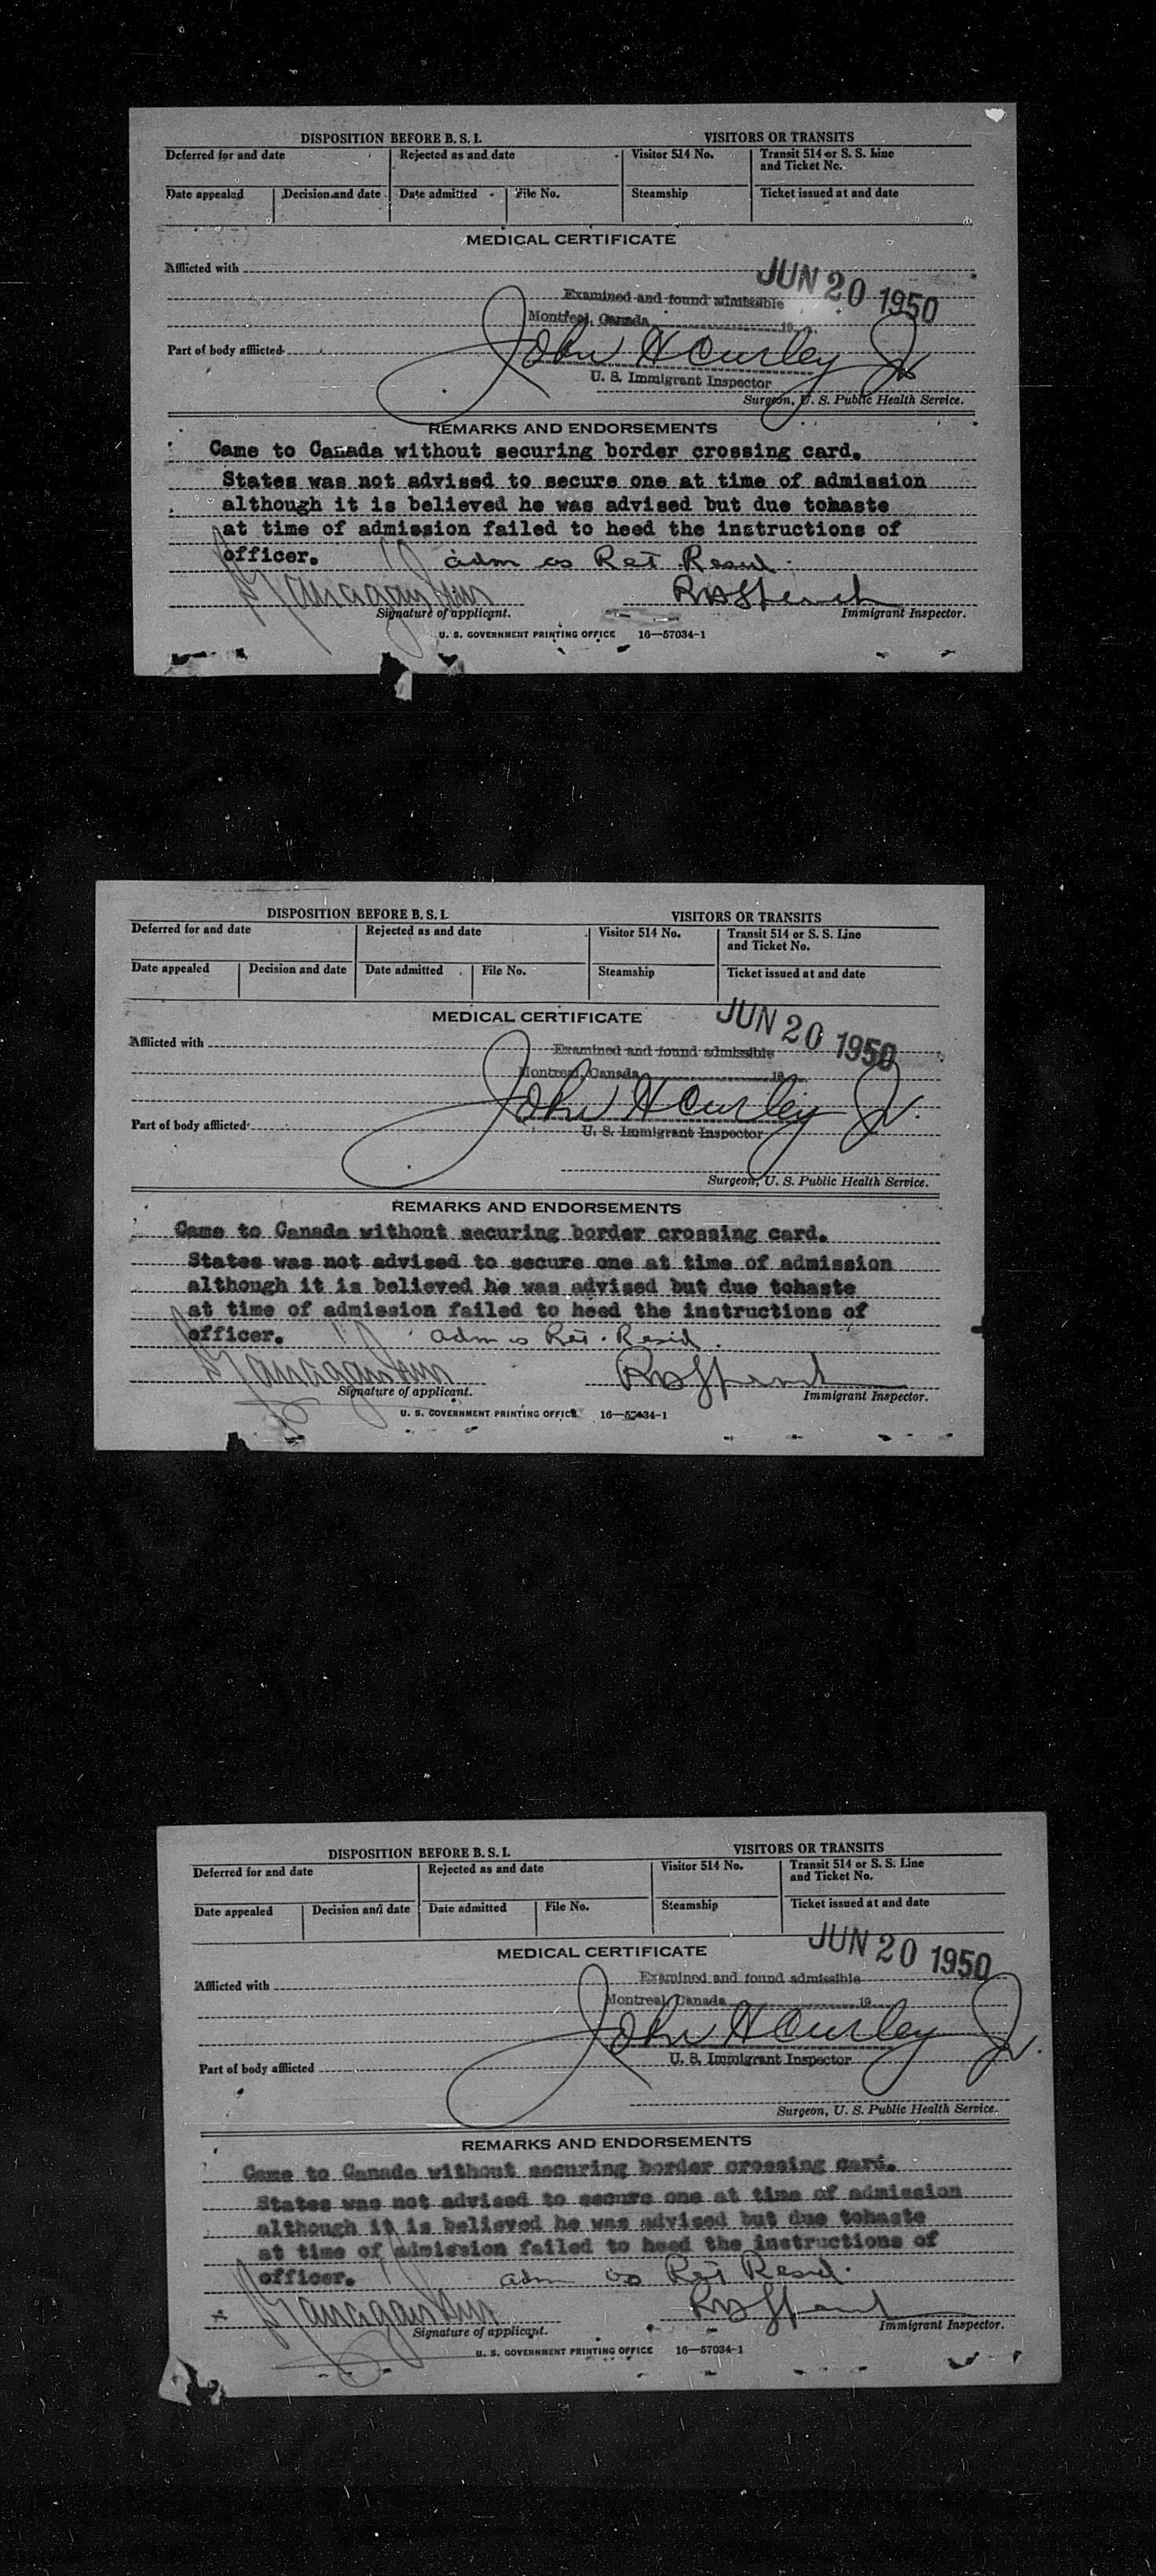 DISPOSITION BEFORE B. S. I. VISITORS OR TRANSITS
Deferred for and date Rejected as and date Visitor 514 No. Transit 514 or S. S. Line
and Ticket No.
Date appealed Decision and date Date admitted File No. Steamship Ticket issued at and date
MEDICAL CERTIFICATE
Afflicted with
JUN 20 1950
Examined and found admissible
Montreal, Canada 19
John H Curley Jr
Part of body afflicted
U. S. Immigrant Inspector
Surgeon, U. S. Public Health Service.
REMARKS AND ENDORSEMENTS
Came to Canada without securing border crossing card.
States was not advised to secure one at time of admission
although it is believed he was advised but due tohaste
at time of admission failed to heed the instructions of
officer. adm as Ret Resid.
Signature of applicant. Immigrant Inspector.
U. S. GOVERNMENT PRINTING OFFICE 16—57034-1
DISPOSITION BEFORE B. S. I. VISITORS OR TRANSITS
Deferred for and date Rejected as and date Visitor 514 No. Transit 514 or S. S. Line
and Ticket No.
Date appealed Decision and date Date admitted File No. Steamship Ticket issued at and date
MEDICAL CERTIFICATE
JUN 20 1950
Afflicted with
Examined and found admissible
Montreal, Canada 19
John H Curley Jr.
Part of body afflicted
U. S. Immigrant Inspector
Surgeon, U. S. Public Health Service.
REMARKS AND ENDORSEMENTS
Came to Canada without securing border crossing card.
States was not advised to secure one at time of admission
although it is believed he was advised but due tohaste
at time of admission failed to heed the instructions of
officer. adm as Ret. Resid.
Signature of applicant. Immigrant Inspector.
U. S. GOVERNMENT PRINTING OFFICE 16—57034-1
DISPOSITION BEFORE B. S. I. VISITORS OR TRANSITS
Deferred for and date Rejected as and date Visitor 514 No. Transit 514 or S. S. Line
and Ticket No.
Date appealed Decision and date Date admitted File No. Steamship Ticket issued at and date
JUN 20 1950
MEDICAL CERTIFICATE
Afflicted with
Examined and found admissible
Montreal, Canada 19
John H Curley Jr.
Part of body afflicted
U. S. Immigrant Inspector
Surgeon, U. S. Public Health Service.
REMARKS AND ENDORSEMENTS
Came to Canada without securing border crossing card.
States was not advised to secure one at time of admission
although it is believed he was advised but due tohaste
at time of admission failed to heed the instructions of
officer. adm as Ret Resid.
x
Signature of applicant. Immigrant Inspector.
U. S. GOVERNMENT PRINTING OFFICE 16—57034-1